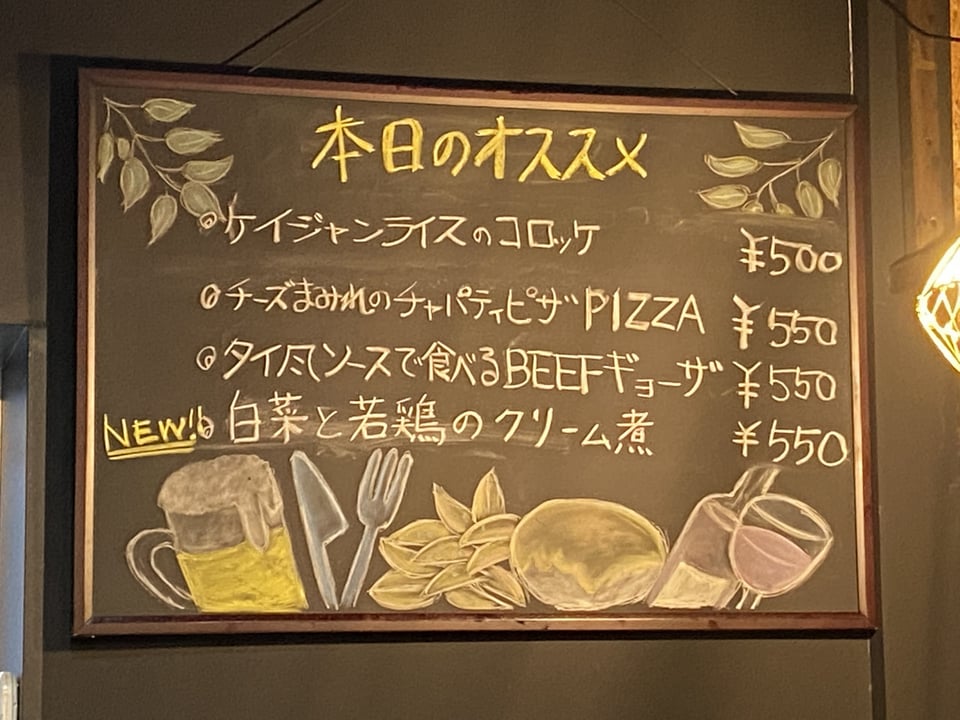 本日のオススメ
◎ケイジャンライスのコロッケ ¥500
◎チーズまみれのチャパティピザPIZZA ¥550
◎タイ風ソースで食べるBEEFギョーザ ¥550
NEW!◎白菜と若鶏のクリーム煮 ¥550